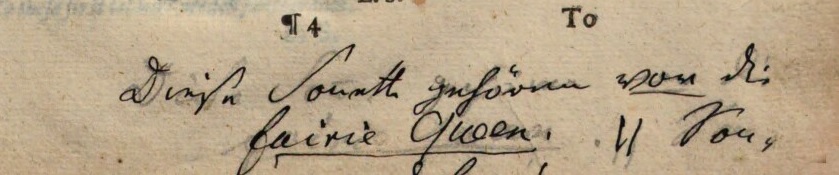 ¶4 To
Diese Sonette gehören vor die
fairie Queen. || Son,